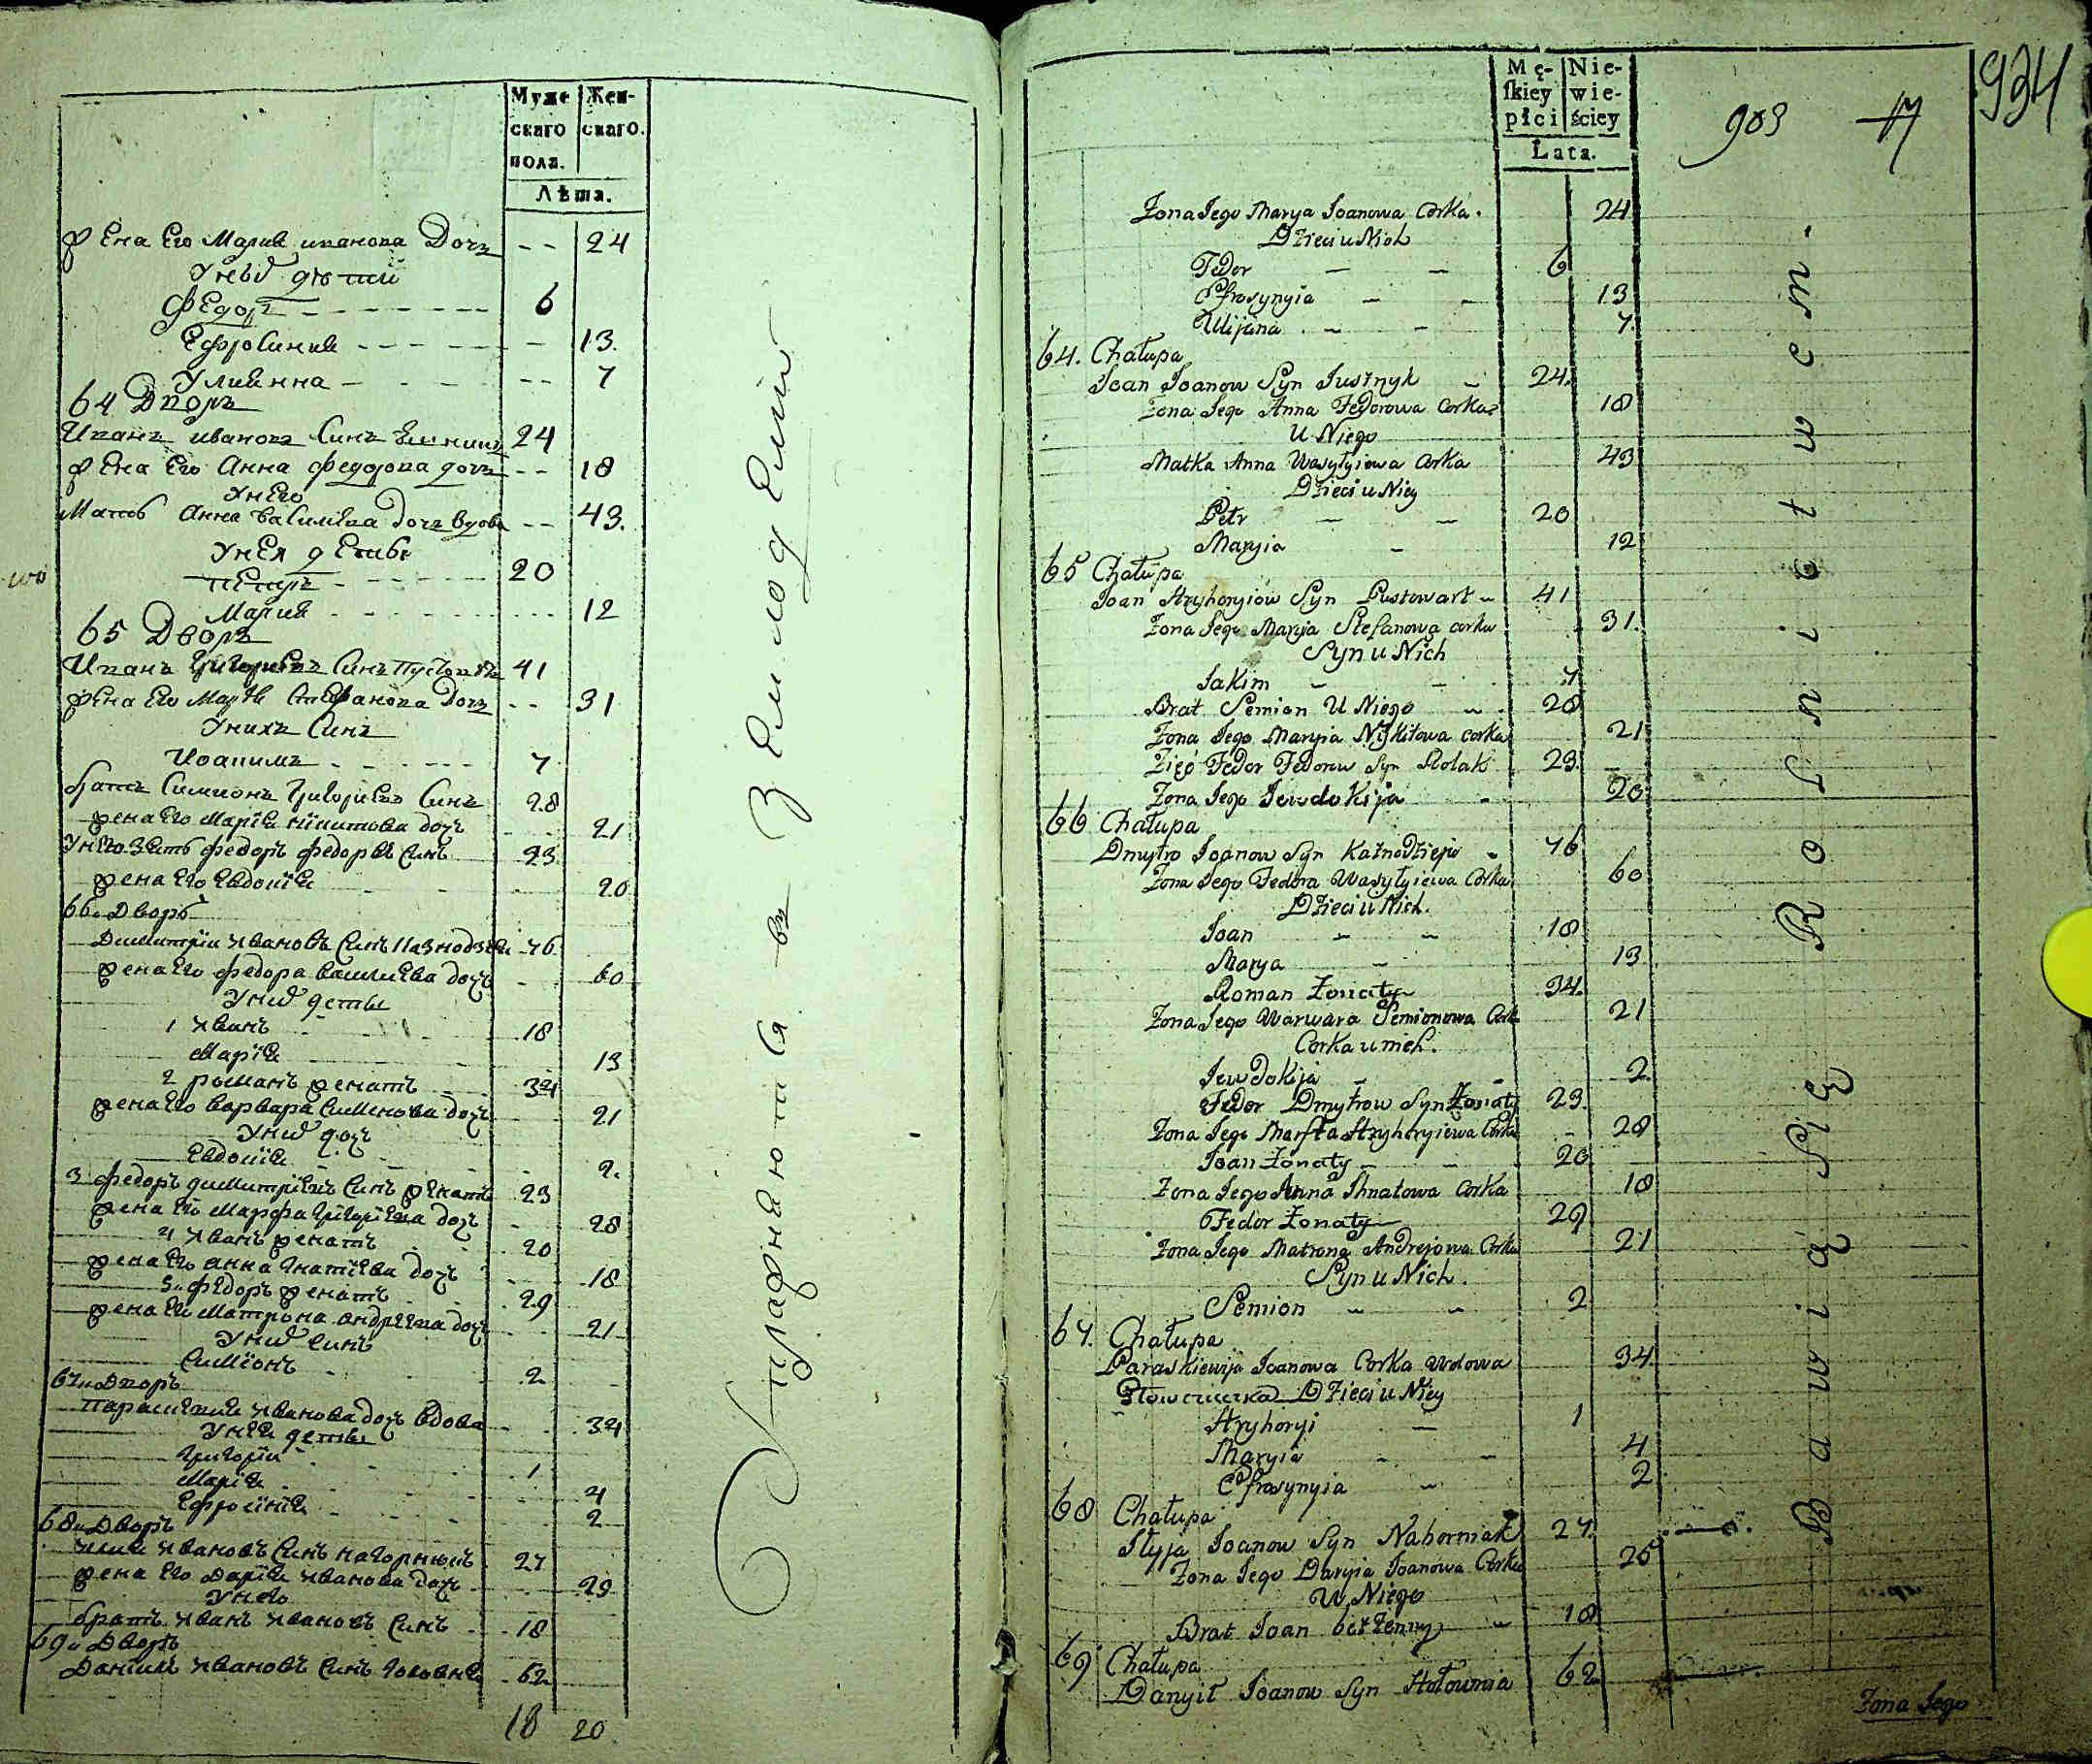 Муже Жен-
скаго скаго.
пола.
Лѣта.
жена Его Мария иванова Дочъ -- 24
Унихъ дѣтей
Федоръ 6
Ефросиния 13.
Улиянна -- 7
64 Дворъ
Иванъ ивановъ Синъ 24
жена Его Анна федорова дочъ -- 18
Унего
Мать Анна василиева дочъ вдова -- 43.
Унея дети
петръ 20
Мария 12
65 Дворъ
Иванъ Григориевъ Синъ 41
жена Его Мария Стефанова Дочъ -- 31
Унихъ Синъ
Иоакимъ 7
братъ Симионъ Григориевъ Синъ 28
жена Его Марiя никитова дочъ 21
Унего зять федоръ федоровъ синъ 23
жена Его Евдокiя 20
66и Дворъ
Димитрiи ивановъ Синъ Казнодзей 76
жена Его федора василиева дочъ 60
Унихъ деты
1 иванъ 18
Марiя 13
2 романъ женатъ 34
жена Его варвара Сименова дочъ 21
Унихъ дочъ
Евдокiя 2.
3 федоръ димитрiевъ Синъ женатъ 23
жена Его Марфа григорiева дочъ 28
4 иванъ женатъ 20
жена Его анна игнатiева дочъ 18
5и федоръ женатъ 29
жена Его Матрона андреева дочъ 21
Унихъ синъ
Симiонъ 2
67и Дворъ
параскевия иванова дочъ вдова 34
Унея деты
григорiи 1
Марiя 4
Ефросiнiя 2
68и Дворъ
илия ивановъ Синъ нагорный 27
жена Его Дарiя иванова дочъ 25
Унего
братъ иванъ ивановъ Синъ 18
69и Дворъ
Данiилъ ивановъ Синъ головня 62
18 20
Упражняются въ Земледелии
Mę- Nie-
skiey wie-
płci ściey
Lata.
903 17
934
Żona Jego Marya Joanowa Corka. 24
Dzieci u Nich
Fedor 6
Efrosynyia 13
Ulijana 7.
64. Chałupa
Joan Joanow Syn 24.
Żona Jego Anna Fedorowa Corka 18
U Niego
Matka Anna Wasyłyiowa Corka 43
Dzieci u Niey
Petr 20
Maryia 12
65 Chałupa
Joan Hryhoryiow Syn Pustowart 41
Żona Jego Maryia Stefanowa corka 31.
Syn u Nich
Jakim 7
Brat Semion U Niego 28
Żona Jego Marya Nykitowa corka 21
Zięć Fedor Fedorow Syn Rolak 23.
Żona Jego Jewdokija 20
66 Chałupa
Dmytro Joanow Syn Kaznodzieja 76
Żona Jego Fedora Wasyłyiewa Corka 60
Dzieci u Nich.
Joan 18
Marya 13
Roman Żonaty 34.
Żona Jego Warwara Semionowa Cork 21
Corka u nich.
Jewdokija 2.
Fedor Dmytrow Syn Żonaty 23.
Żona Jego Marfta Hryhoryiewa Corka 28
Joan Żonaty 20.
Żona Jego Anna Ihnatowa Corka 18
Fedor Żonaty 29
Żona Jego Matrona Andrejowa Corka 21
Syn u Nich.
Semion 2
67. Chałupa
Paraskiewija Joanowa Corka Wdowa 34
Dzieci u Niey
Hryhoryi 1
Maryia 4
Efrosynyia 2
68 Chałupa
Ilyja Joanow Syn Nahorniak 27.
Żona Jego Daryia Joanowa Corka 25
U Niego
Brat Joan bezżenny 18
69 Chałupa
Danyił Joanow Syn Hołownia 62
Bawią Się Rolnictwem.
Żona Jego